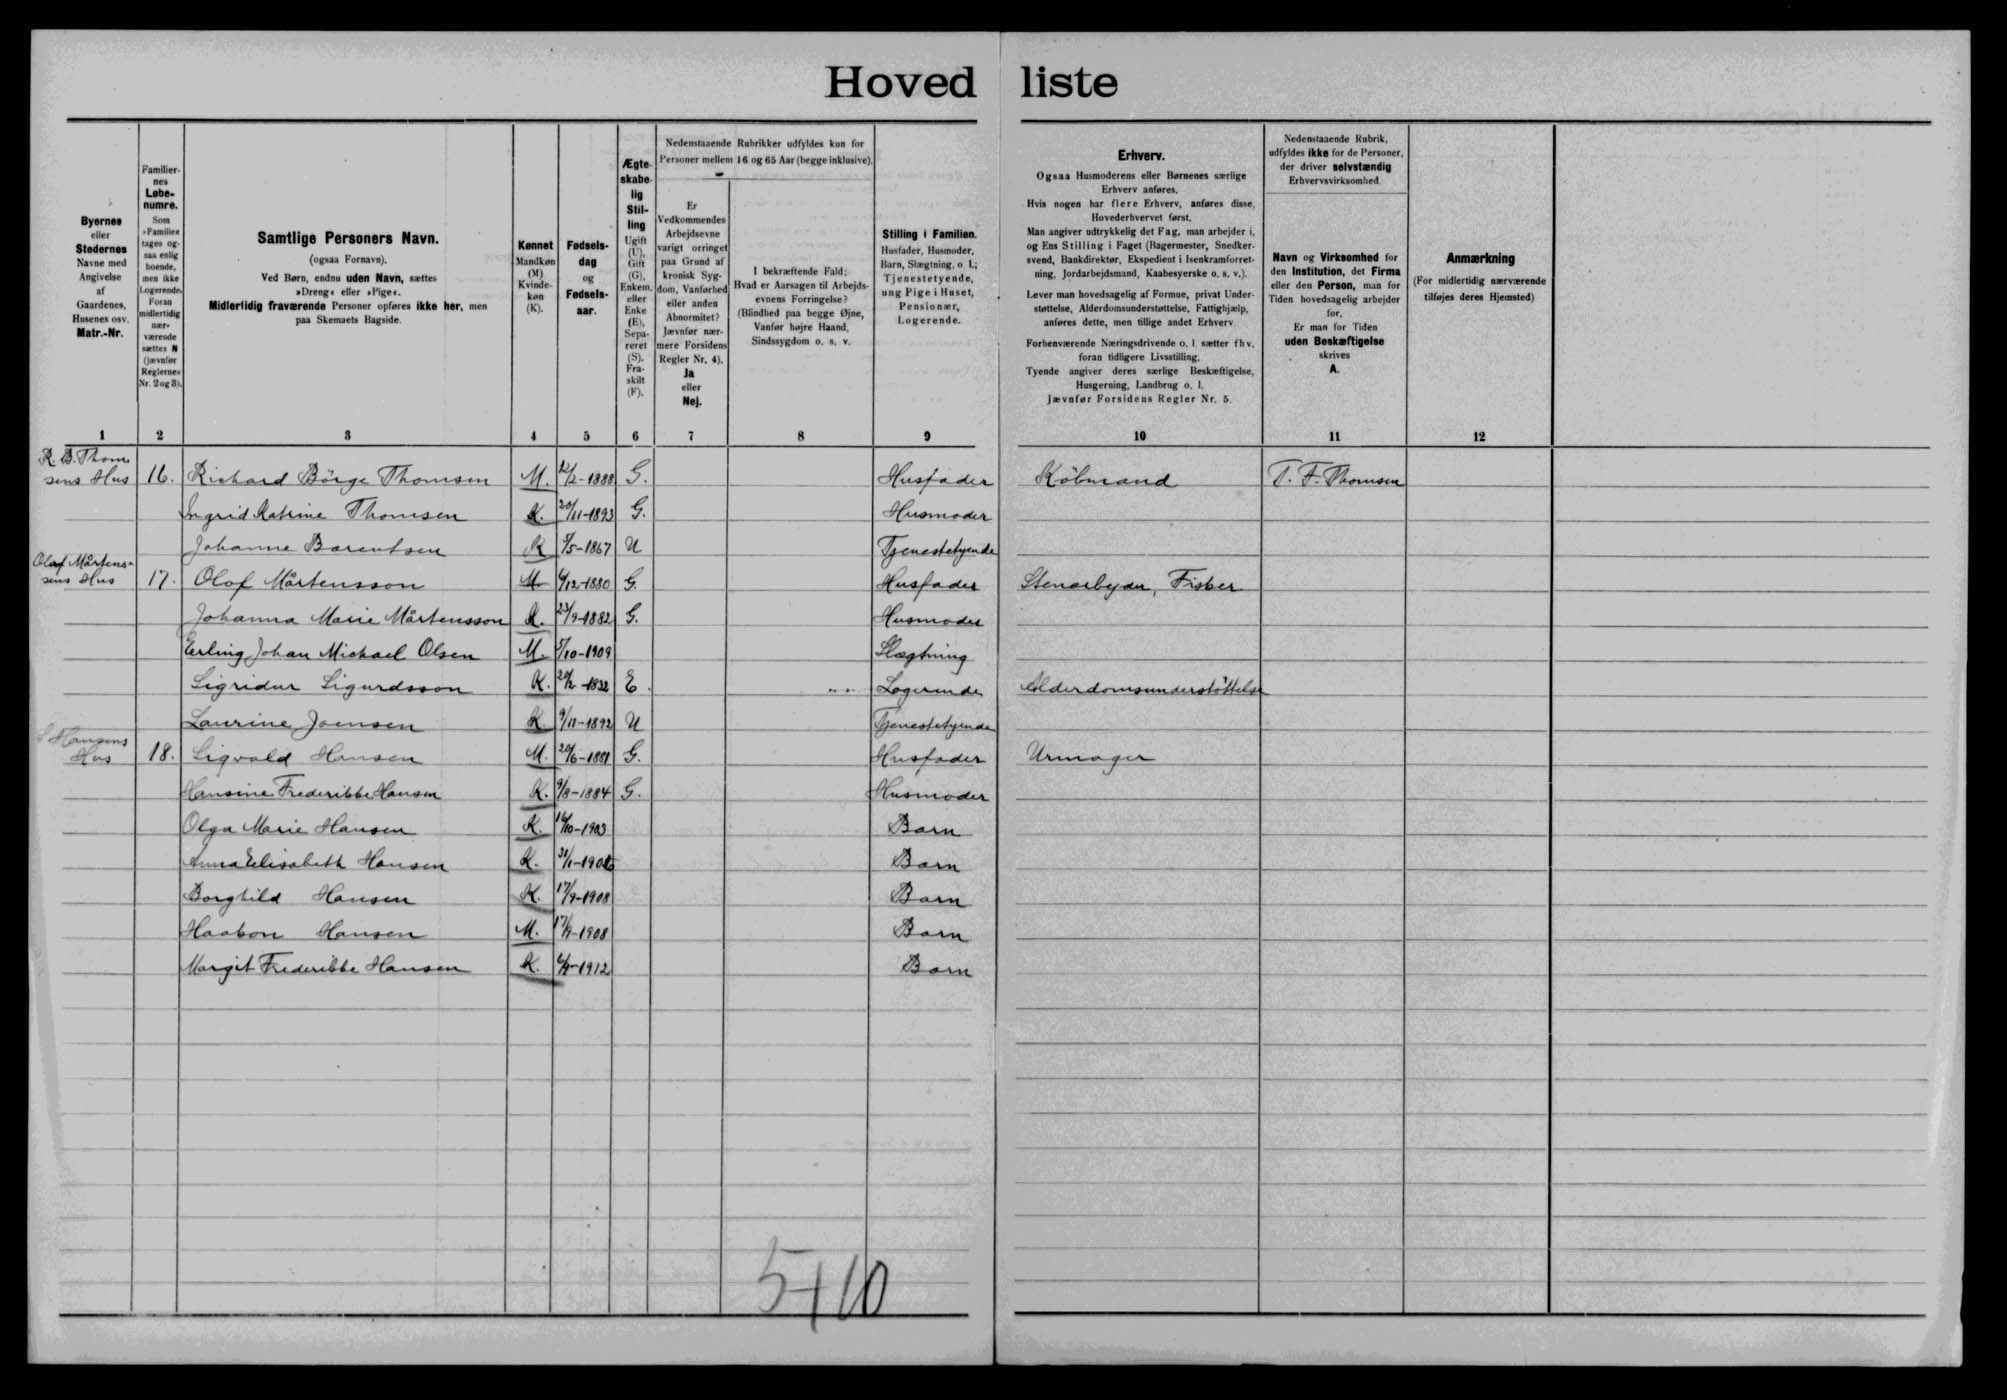 Hoved liste
Byernes eller Stedernes Navne med Angivelse af Gaardenes, Husenes osv. Matr.-Nr.
Familiernes Løbenumre. Som »Familie« tages ogsaa enlig boende, men ikke Logerende. Foran midlertidig nærværende sættes N (jævnfør Reglernes Nr. 2 og 3).
Samtlige Personers Navn.
(ogsaa Fornavn).
Ved Børn, endnu uden Navn, sættes
»Dreng« eller »Pige«.
Midlertidig fraværende Personer opføres ikke her, men
paa Skemaets Bagside.
Kønnet Mandkøn (M) Kvindekøn (K).
Fødselsdag og Fødselsaar.
Ægteskabelig Stilling Ugift (U), Gift (G), Enkem. eller Enke (E), Separeret (S). Fraskilt (F).
Nedenstaaende Rubrikker udfyldes kun for
Personer mellem 16 og 65 Aar (begge inklusive).
Er Vedkommendes Arbejdsevne varigt forringet paa Grund af kronisk Sygdom, Vanførhed eller anden Abnormitet? Jævnfør nærmere Forsidens Regler Nr. 4). Ja eller Nej.
I bekræftende Fald: Hvad er Aarsagen til Arbejdsevnens Forringelse? (Blindhed paa begge Øjne, Vanfør højre Haand, Sindssygdom o. s. v.
Stilling i Familien. Husfader, Husmoder, Barn, Slægtning, o. l.; Tjenestetyende, ung Pige i Huset, Pensionær, Logerende.
Erhverv.
Ogsaa Husmoderens eller Børnenes særlige
Erhverv anføres.
Hvis nogen har flere Erhverv, anføres disse,
Hovederhvervet først.
Man angiver udtrykkelig det Fag, man arbejder i,
og Ens Stilling i Faget (Bagermester, Snedker-
svend, Bankdirektør, Ekspedient i Isenkramforret-
ning, Jordarbejdsmand, Kaabesyerske o. s. v.).
Lever man hovedsagelig af Formue, privat Under-
støttelse, Alderdomsunderstøttelse, Fattighjælp,
anføres dette, men tillige andet Erhverv
Forhenværende Næringsdrivende o. l. sætter fhv.
foran tidligere Livsstilling.
Tyende angiver deres særlige Beskæftigelse,
Husgerning, Landbrug o. l.
Jævnfør Forsidens Regler Nr. 5.
Nedenstaaende Rubrik,
udfyldes ikke for de Personer,
der driver selvstændig
Erhvervsvirksomhed.
Navn og Virksomhed for
den Institution, det Firma
eller den Person, man for
Tiden hovedsagelig arbejder
for.
Er man for Tiden
uden Beskæftigelse
skrives
A.
Anmærkning
(For midlertidig nærværende
tilføjes deres Hjemsted)
1 2 3 4 5 6 7 8 9 10 11 12
R. B. Thom
sens Hus 16. Richard Børge Thomsen M. 12/2-1888 G. Husfader Købmand T. F. Thomsen
Ingrid Katrine Thomsen K. 20/11-1893 G. Husmoder
Johanne Barentsen K 3/5-1867 U Tjenestetyende
Olof Mårtens-
sens Hus 17. Olof Mårtensson M 6/12-1880 G. Husfader Stenarbejder, Fisker
Johanna Marie Mårtensson K. 23/9-1882 G. Husmoder
Erling Johan Michael Olsen M. 5/10-1909 Slægtning
Sigridur Sigurdsson K. 20/2-1832 E. Logerende Alderdomsunderstøttelse
Laurine Joensen K 9/11-1892 U Tjenestetyende
S Hansens
Hus 18. Sigvald Hansen M. 20/6-1881 G. Husfader Urmager
Hansine Frederikke Hansen K. 9/8-1884 G. Husmoder
Olga Marie Hansen K. 16/10-1903 Barn
Anna Elisabeth Hansen K. 31/1-1906 Barn
Borghild Hansen K. 17/9-1908 Barn
Haakon Hansen M. 17/9-1908 Barn
Margit Frederikke Hansen K. 1912 Barn
5+10